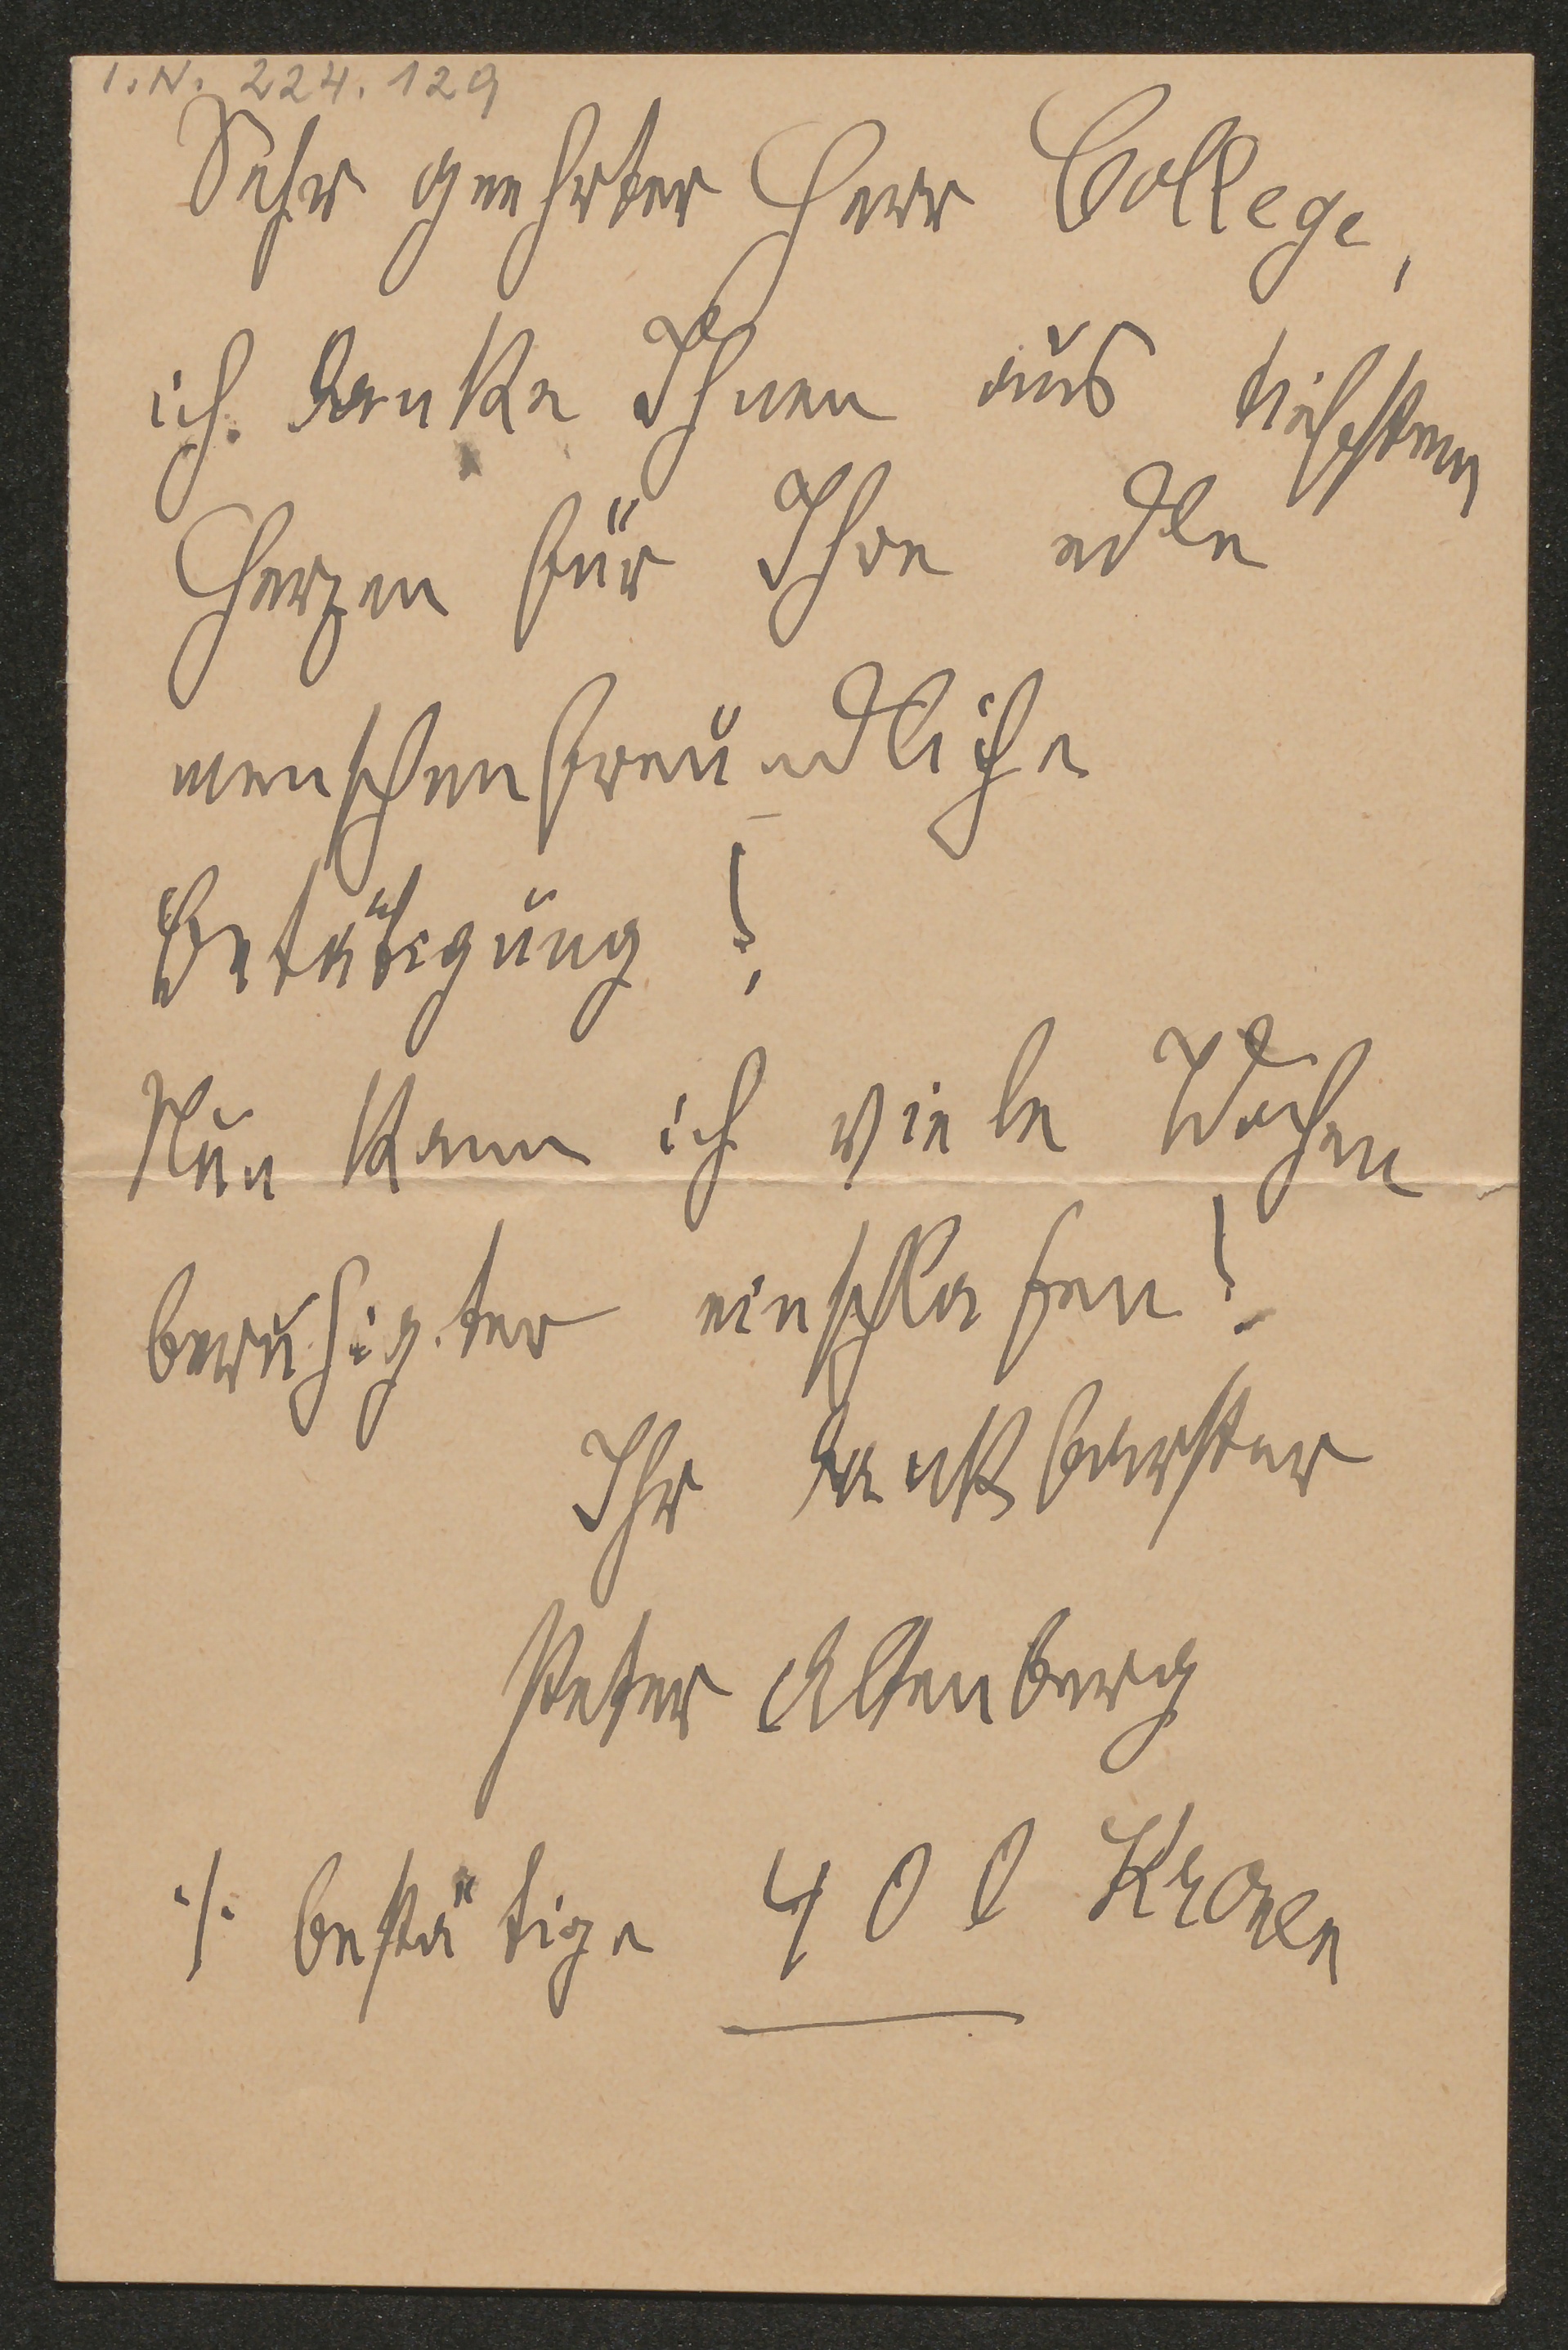 I.N. 224.129
Sehr geehrter Herr College,
ich danke Ihnen aus tiefstem
Herzen für Ihre edle
menschenfreundliche
Betätigung!
Nun kann ich viele Wochen
beruhigter einschlafen!
Ihr dankbarster
Peter Altenberg
./. bestätige 400 Kronen